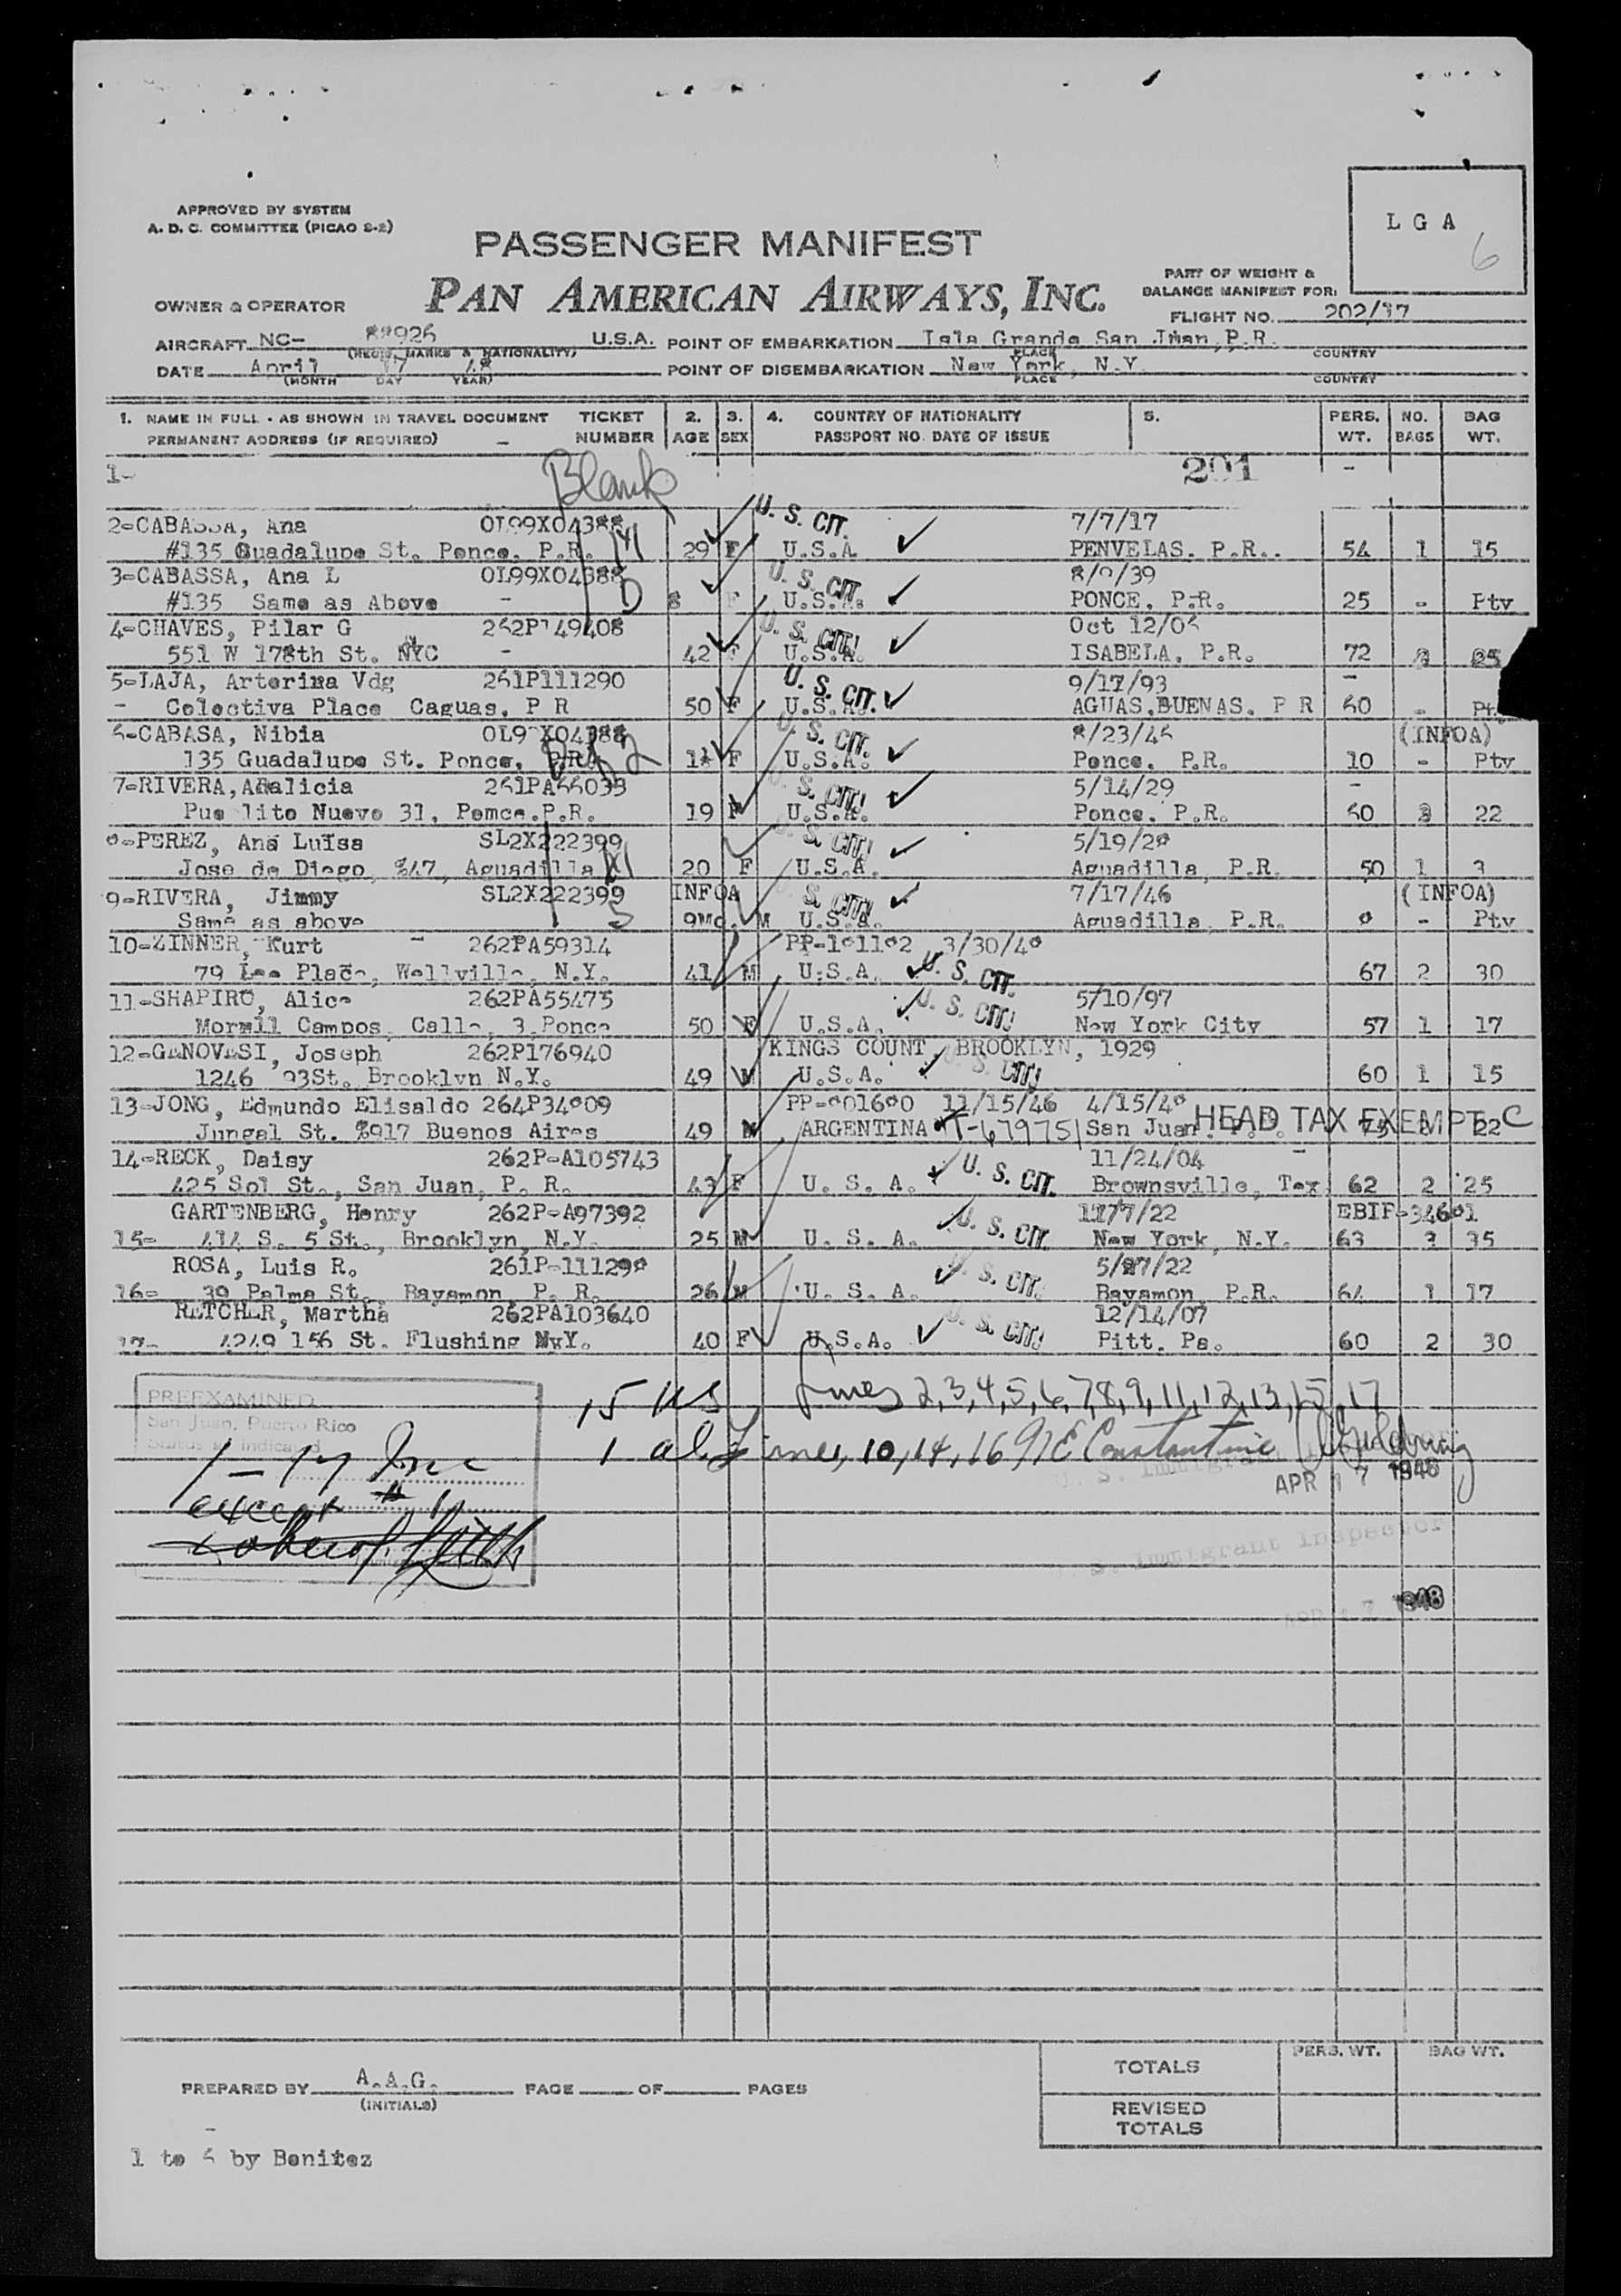 APPROVED BY SYSTEM
A. D. C. COMMITTEE (PICAO 2-2)
L G A
6
PASSENGER MANIFEST
PAN AMERICAN AIRWAYS, INC.
PART OF WEIGHT &
BALANCE MANIFEST FOR:
OWNER & OPERATOR
FLIGHT NO. 202/17
AIRCRAFT NC- 88926 U.S.A. POINT OF EMBARKATION Isla Grande San Juan, P.R.
(REGIS. MARKS & NATIONALITY) PLACE COUNTRY
DATE April 17 48 POINT OF DISEMBARKATION New York, N.Y.
(MONTH DAY YEAR) PLACE COUNTRY
1. NAME IN FULL - AS SHOWN IN TRAVEL DOCUMENT TICKET 2. 3. 4. COUNTRY OF NATIONALITY 5. PERS. NO. BAG
PERMANENT ADDRESS (IF REQUIRED) NUMBER AGE SEX PASSPORT NO. DATE OF ISSUE WT. BAGS WT.
1- Blank 201
2-CABASSA, Ana OL99X04388 U. S. CIT. 7/7/17
#135 Guadalupe St. Ponce. P.R. 29 F U.S.A PENVELAS. P.R.. 54 1 15
3-CABASSA, Ana L OL99X04388 U. S. CIT. 8/9/39
#135 Same as Above - D 8 F U.S.A. PONCE. P.R. 25 - Ptv
4-CHAVES, Pilar G 262P149408 U. S. CIT! Oct 12/06
551 W 178th St. NYC - 42 F U.S.A. ISABELA, P.R. 72 25
5-LAJA, Arterina Vdg 261P111290 U. S. CIT. 9/17/93
- Colectiva Place Caguas, P R 50 F U.S.A. AGUAS.BUENAS. P R 60 -
6-CABASA, Nibia U. S. CIT. 8/23/46 (INFOA)
135 Guadalupe St. Ponce, P.R. F U.S.A. Ponce. P.R. 10 - Ptv
7-RIVERA, Adalicia 261PA66033 U. S. CIT! 5/14/29
Pue lito Nuevo 31, Pomce.P.R. 19 F U.S.A. Ponce. P.R. 60 22
8-PEREZ, Ana Luisa SL2X222399 U. S. CIT!
Jose de Diego, %47, Aguadilla 20 F U.S.A. Aguadilla, P.R. 50 1 3
9-RIVERA, Jimmy SL2X222399 INFOA U. S. CIT! 7/17/46 (INFOA)
Same as above 9Mo. M U.S.A. Aguadilla, P.R. - Ptv
10-ZINNER, Kurt 262PA59314
79 Lee Place, Wellville, N.Y. 41 M U.S.A. U. S. CIT. 67 2 30
11-SHAPIRO, Alice 262PA55473 U. S. CIT! 5/10/97
Mormil Campos, Calle, 3,Ponce 50 F U.S.A. New York City 57 1 17
12-GENOVESI, Joseph 262P176940 KINGS COUNT, BROOKLYN, 1929
1246 93St. Brooklyn N.Y. 49 M U.S.A. U. S. CIT! 60 1 15
13-JONG, Edmundo Elisaldo 264P34809 11/15/46
Jungal St. %917 Buenos Aires 49 M ARGENTINA T-679751 San Juan. P.R. HEAD TAX EXEMPT C 22
14-RECK, Daisy 262P-A105743 11/24/04
425 Sol St., San Juan, P. R. 43 F U. S. A. U. S. CIT. Brownsville, Tex 62 2 25
GARTENBERG, Henry 262P-A97392 U. S. CIT. 11/7/22
15- 414 S. 5 St., Brooklyn, N.Y. 25 M U. S. A. New York, N.Y. 63 35
ROSA, Luis R. 261P-111298 U. S. CIT.
16- 39 Palma St., Bayamon, P. R. 26 M U. S. A. Bayamon, P.R. 64 1 17
RETCHER, Martha 262PA103640 U. S. CIT! 12/14/07
17- 4249 156 St. Flushing N.Y. 40 F U.S.A. Pitt. Pa. 60 2 30
PREEXAMINED
San Juan, Puerto Rico
Status as indicated
15 US Lines 2,3,4,5,6,7,8,9,11,12,13,15,17
1 al. Lines, 10, 14, 16 Constantine
1-17 Inc
except # 1
APR 17 1948
U. S. Immigrant Inspector
APR 17 1948
PERS. WT. BAG WT.
TOTALS
PREPARED BY A.A.G. PAGE OF PAGES
(INITIALS)
REVISED
TOTALS
1 to 6 by Benitez